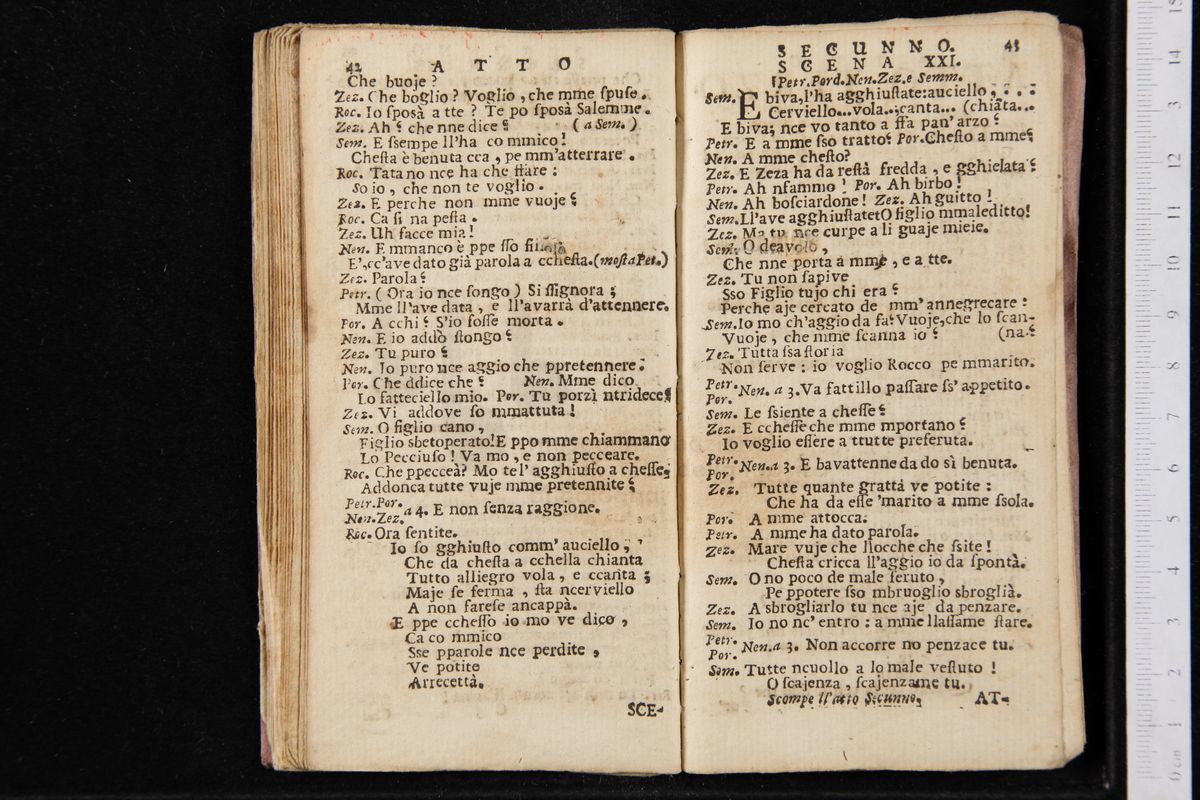 42 A T T O
Che buoje?
Zez. Che boglio? Voglio, che mme ſpuſe.
Roc. Io ſposà a tte? Te po ſposà Salemme.
Zez. Ah? che nne dice? (a Sem.)
Sem. E ſsempe ll'ha co mmico!
Cheſta è benuta cca, pe mm'atterrare.
Roc. Tata no nce ha che ſtare:
So io, che non te voglio.
Zez. E perche non mme vuoje?
Roc. Ca ſi na peſta.
Zez. Uh facce mia!
Nen. E mmanco è ppe ſſo
E', cc'ave dato già parola a ccheſta. (moſta Pet.)
Zez. Parola?
Petr. (Ora io nce ſongo) Si ſſignora;
Mme ll'ave data, e ll'avarrà d'attennere.
Por. A cchi? S'io foſſe morta.
Nen. E io addò ſtongo?
Zez. Tu puro?
Nen. Io puro nce aggio che ppretennere.
Por. Che ddice che? Nen. Mme dico
Lo fatteciello mio. Por. Tu porzì ntridece?
Zez. Vi addove ſo mmattuta!
Sem. O figlio cano,
Figlio sbetoperato! E ppo mme chiammano
Lo Pecciuſo! Va mo, e non pecceare.
Roc. Che ppecceà? Mo te l'agghiuſto a cheſſe;
Addonca tutte vuje mme pretennite?
Petr. Por.
Nen. Zez. a 4. E non ſenza raggione.
Roc. Ora ſentite.
Io ſo gghiuſto comm'auciello,
Che da cheſta a cchella chianta
Tutto alliegro vola, e ccanta;
Maje ſe ferma, ſta ncerviello
A non fareſe ancappà.
E ppe ccheſſo io mo ve dico,
Ca co mmico
Sse pparole nce perdite,
Ve potite
Arrecettà.
SCE-
SECUNNO. 43
SCENA XXI.
Petr. Pord. Nen. Zez. e Semm.
Sem. E biva, l'ha agghiuſtate: auciello, . . :
Cerviello... vola..; canta... (chiata...
E biva; nce vo tanto a ffa pan' arzo?
Petr. E a mme ſso tratto? Por. Cheſto a mme?
Nen. A mme cheſto?
Zez. E Zeza ha da reſtà fredda, e gghielata?
Petr. Ah nfammo! Por. Ah birbo!
Nen. Ah boſciardone! Zez. Ah guitto!
Sem. Ll'ave agghiuſtate! O figlio mmaleditto!
Zez. Ma tu nce curpe a li guaje mieie.
Sem. O deavolo,
Che nne porta a mme, e a tte.
Zez. Tu non ſapive
Sso Figlio tujo chi era?
Perche aje cercato de mm'annegrecare?
Sem. Io mo ch'aggio da fa? Vuoje, che lo ſcan-
Vuoje, che mme ſcanna io? (na?
Zez. Tutta ſsa ſtoria
Non ſerve: io voglio Rocco pe mmarito.
Petr.
Por. Nen. a 3. Va fattillo paſſare ſs'appetito.
Sem. Le ſsiente a cheſſe?
Zez. E ccheſſe che mme mportano?
Io voglio eſſere a ttutte preferuta.
Petr.
Por. Nen. a 3. E bavattenne da do sì benuta.
Zez. Tutte quante grattà ve potite:
Che ha da eſſe 'marito a mme ſsola.
Por. A mme attocca.
Petr. A mme ha dato parola.
Zez. Mare vuje che llocche che ſsite!
Cheſta cricca ll'aggio io da ſpontà.
Sem. O no poco de male ſeruto,
Pe ppotere ſso mbruoglio sbroglià.
Zez. A sbrogliarlo tu nce aje da penzare.
Sem. Io no nc'entro: a mme llaſſame ſtare.
Petr.
Por. Nen. a 3. Non accorre no penzace tu.
Sem. Tutte ncuollo a lo male veſtuto!
O ſcajenza, ſcajenzame tu.
Scompe ll'atto Secunno. AT-